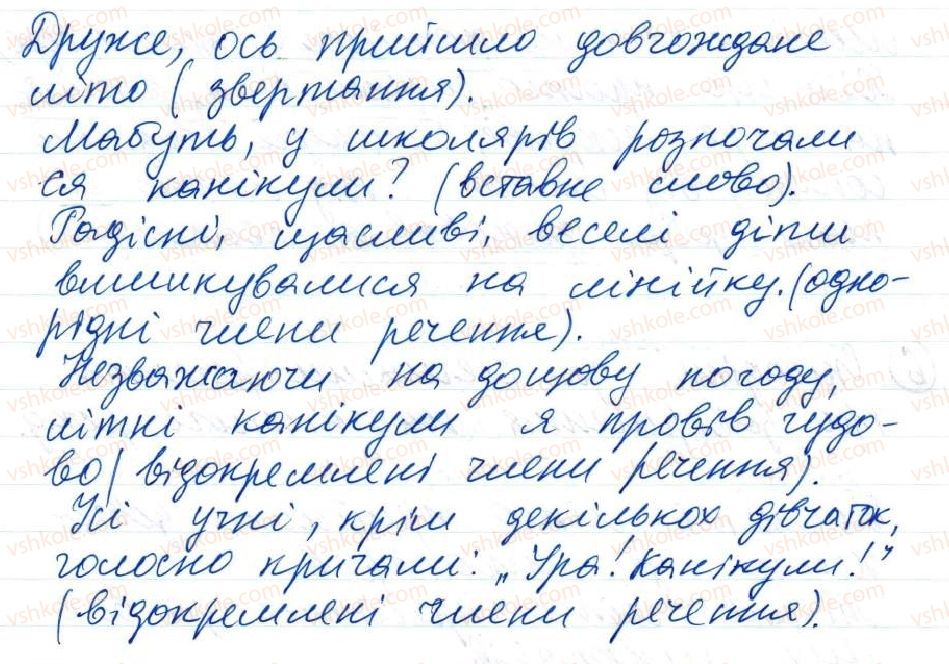 Друже, ось прийшло довгождане
літо (звертання).
Мабуть, у школярів розпочали
ся канікули? (вставне слово).
Радісні, щасливі, веселі діти
вишикувалися на лінійку. (одно-
рідні члени речення).
Незважаючи на дощову погоду,
літні канікули я провів чудо-
во (відокремлені члени речення).
Усі учні, крім декількох дівчаток,
голосно кричали: „Ура! Канікули!"
(відокремлені члени речення).